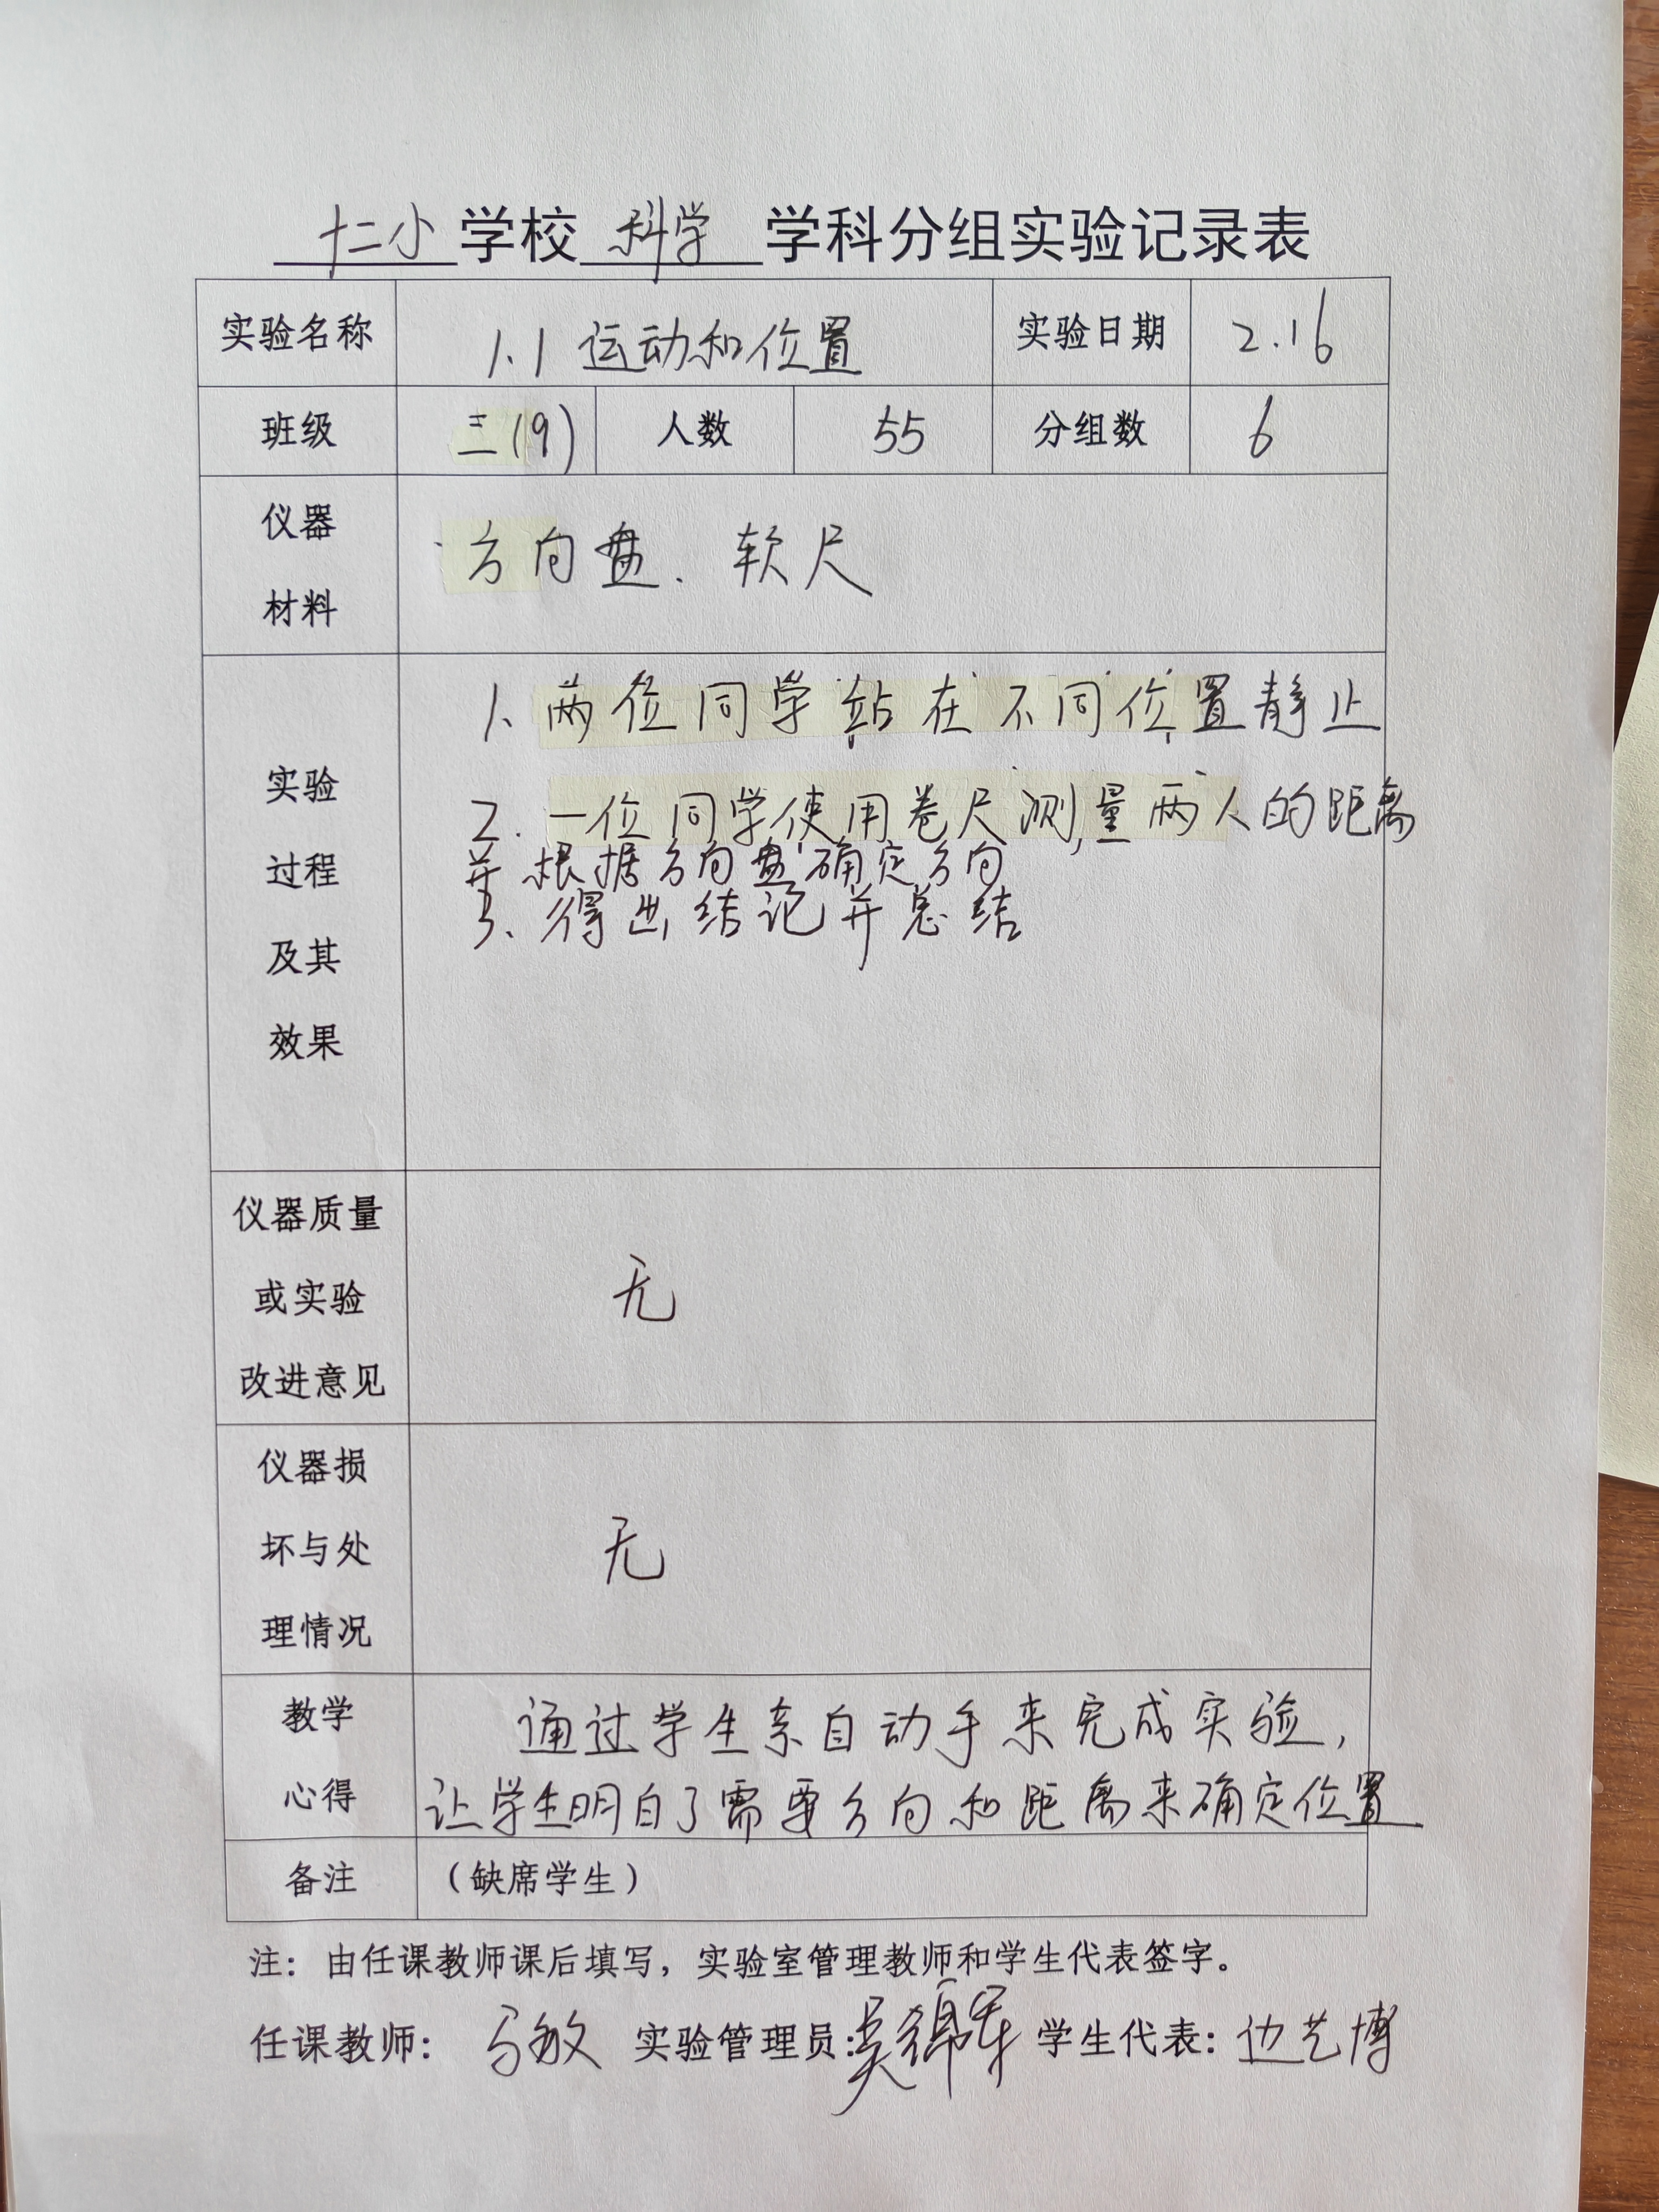 十二小学校科学学科分组实验记录表
实验名称 1.1 运动和位置 实验日期 2.16
班级 三(9) 人数 55 分组数 6
仪器
材料
方向盘、软尺
实验
过程
及其
效果
1、两位同学站在不同位置静止
2、一位同学使用卷尺测量两人的距离
并根据方向盘确定方向
3、得出结记并总结
仪器质量
或实验
改进意见
无
仪器损
坏与处
理情况
无
教学
心得
通过学生亲自动手来完成实验,
让学生明白了需要方向和距离来确定位置
备注 (缺席学生)
注:由任课教师课后填写,实验室管理教师和学生代表签字。
任课教师:马敏 实验管理员:吴锦军 学生代表:边艺博